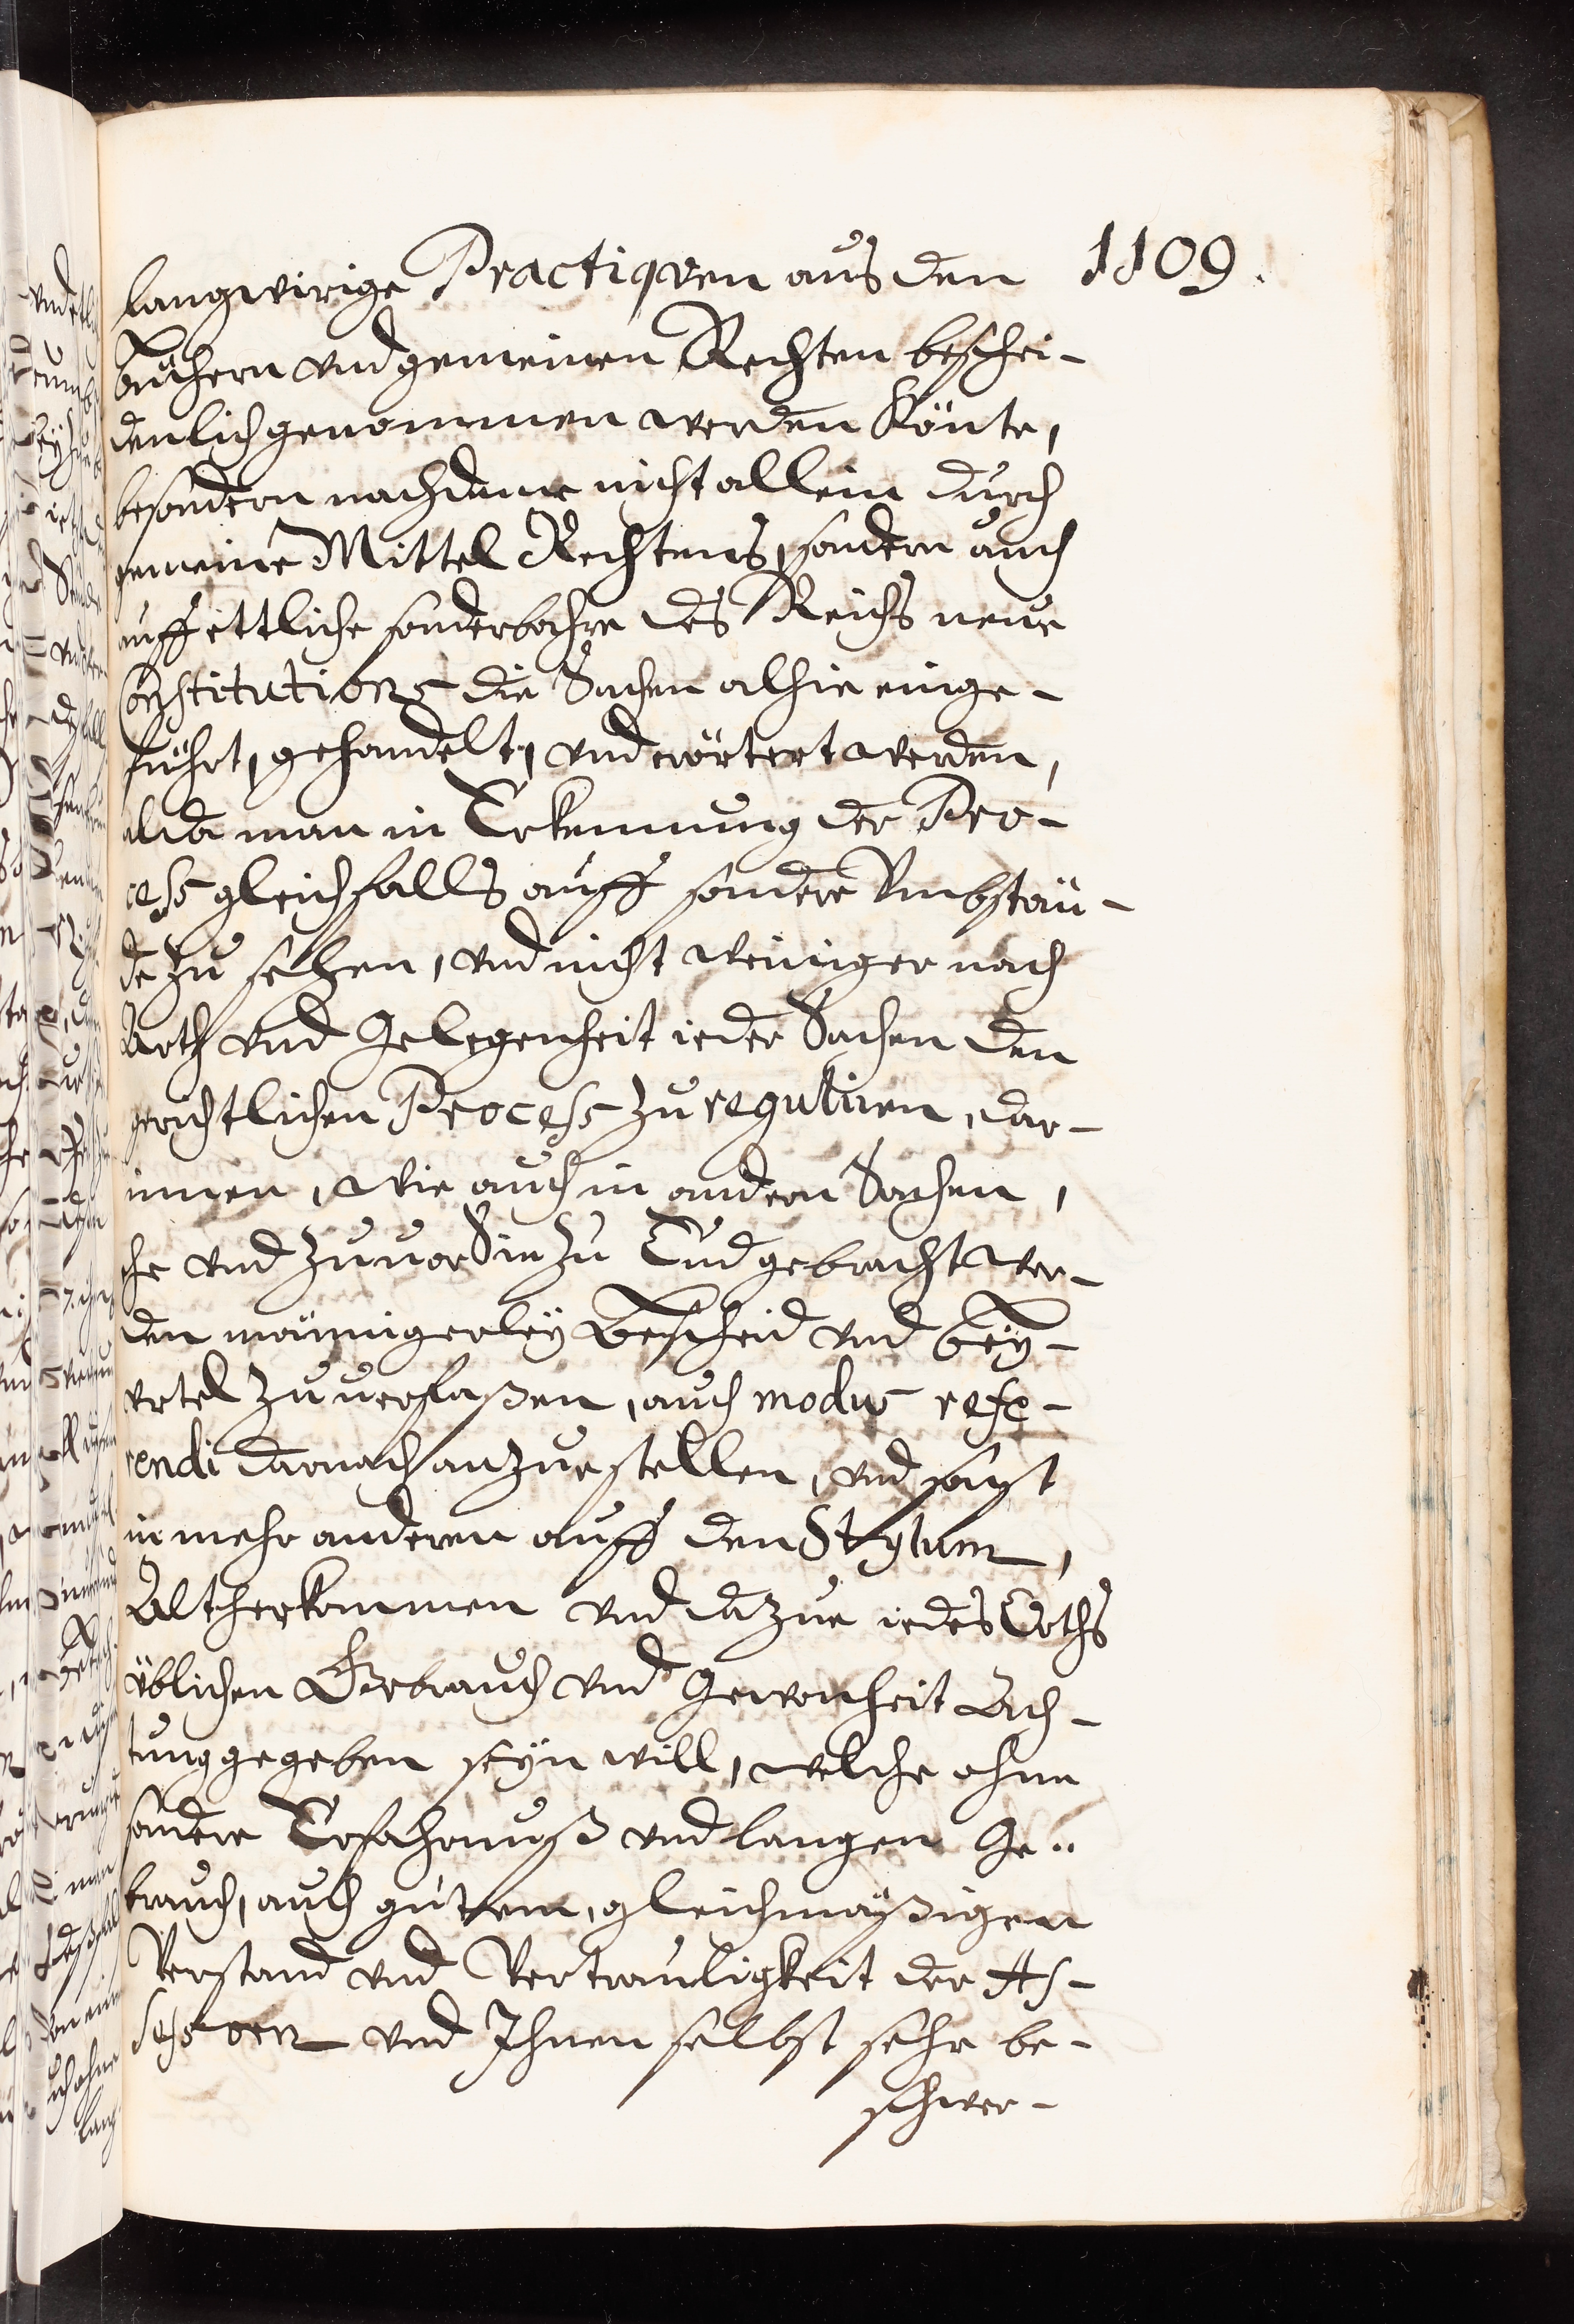 1109.
langwirige Practiqven aus den
Büchern vnd gemeinen Rechten beschei-
denlich genommen werden Könte,
besondern nachdeme nicht allein durch
gemeine Mittel Rechtens, sondern auch
auff ettliche sonderbahre des Reichs neue
Constitutions die Sachen alhie einge-
führt, gehandelt, vnd erörtert werden,
alda man in Erkennung der Pro-
cess gleichfalls auff sondere Vmbstän-
de zu sehen, vnd nicht weiniger nach
Arth vnd Gelegenheit ieder Sachen den
gerichtlichen Process zu reguliren, dar-
innen, wie auch in andern Sachen,
ehe vnd zuuor Sie zu End gebracht wer-
den männigerleÿ Bescheid vnd Beÿ-
vrtel zuuerfaßen, auch modus refe-
rendi darnach anzuestellen, vnd sonst
in mehr anderen auff den Stylum,
Altherkommen vnd dazue iedes Orths
üblichen Gebrauch vnd Gewonheit Ach-
tung gegeben seÿn will, welche ohne
sondere Erfahrnuß vnd langen Ge-
brauch, auch gutem, gleichmäßigen
Verstand vnd Vertrauligkeit der As-
sessorn vnd Ihnen selbst sehr be-
schwer-